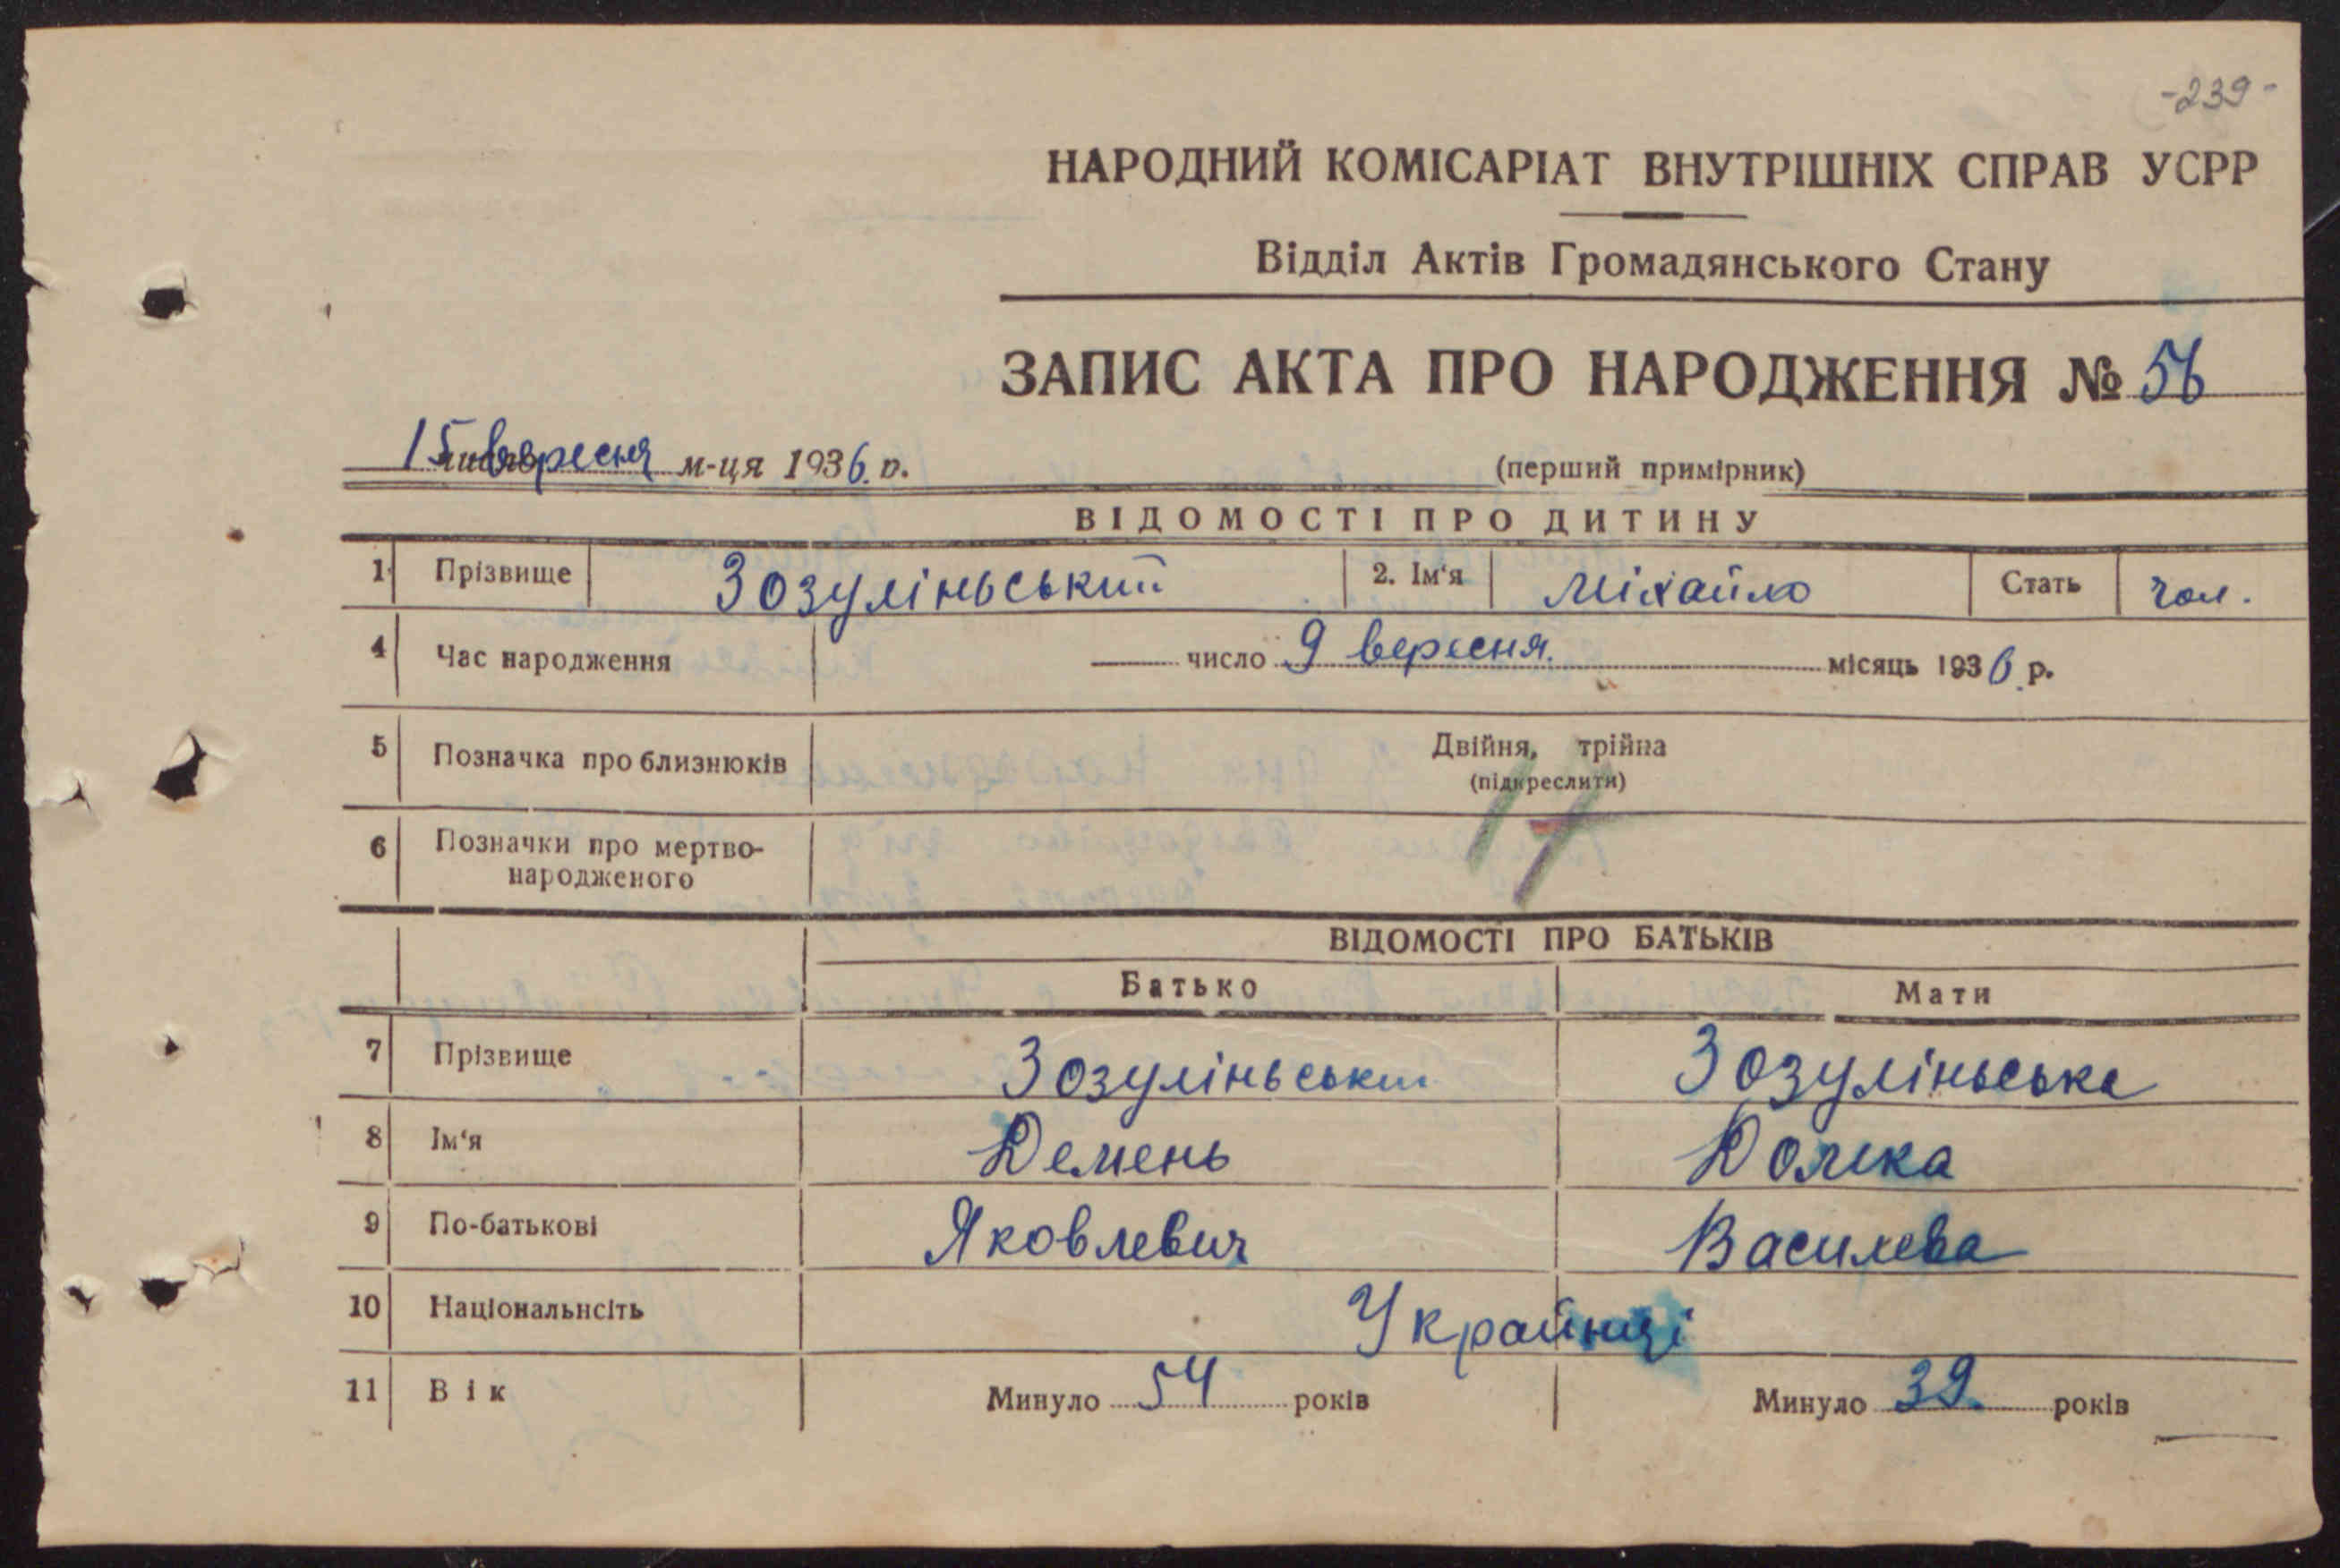 -239-
НАРОДНИЙ КОМІСАРІАТ ВНУТРІШНІХ СПРАВ УСРР
Відділ Актів Громадянського Стану
ЗАПИС АКТА ПРО НАРОДЖЕННЯ № 56
15 вересня м-ця 1936 р.
(перший примірник)
ВІДОМОСТІ ПРО ДИТИНУ
1 Прізвище Зозуліньський 2. Ім'я Міхайло Стать чол.
4 Час народження число 9 вересня. місяць 1936 р.
5 Позначка про близнюків Двійня, трійна
(підкреслити)
6 Позначки про мертво-
народженого
17
ВІДОМОСТІ ПРО БАТЬКІВ
Батько Мати
7 Прізвище Зозуліньський Зозуліньська
8 Ім'я Демень
9 По-батькові Яковлевич Василева
10 Національнсіть Українці
11 Вік Минуло 54 років Минуло 39 років